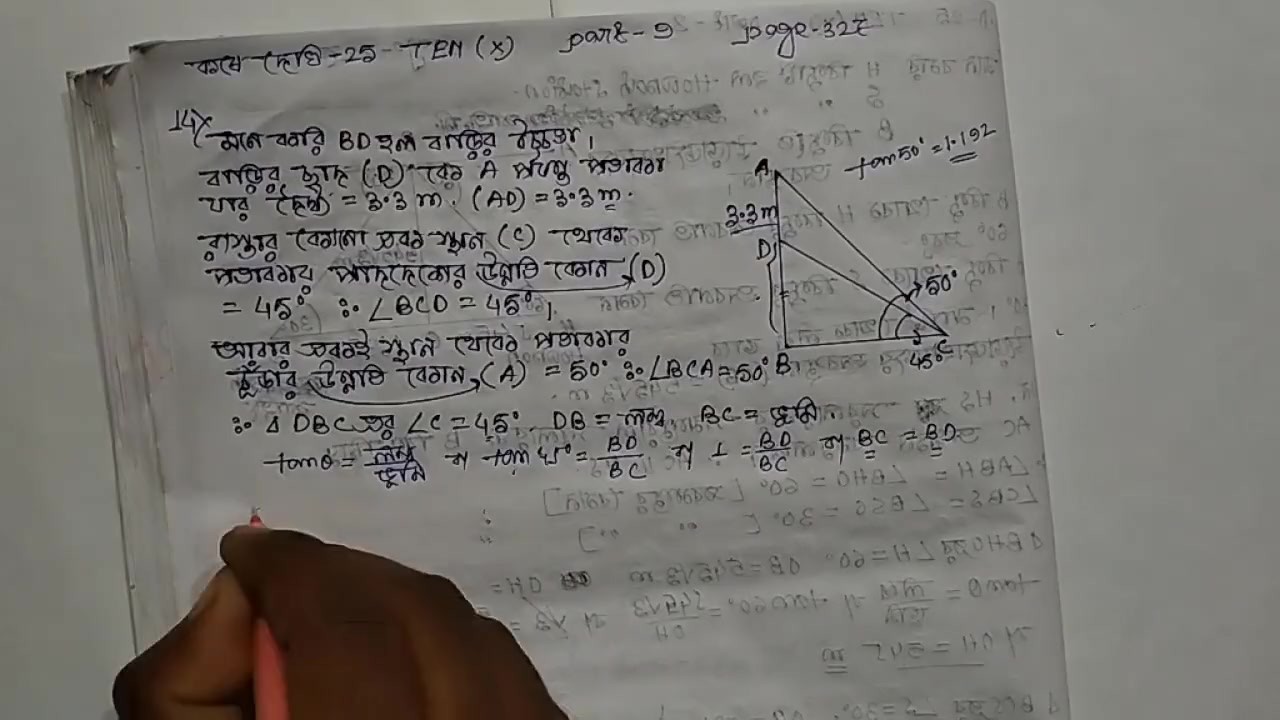 কষে দেখি-25 - TEN (X) part-9 page-327
14X মনে করি BD হল বাড়ির উচ্চতা।
বাড়ির ছাদ (D) থেকে A পর্যন্ত পতাকা
যার দৈর্ঘ্য = 3.3 m. (AD) = 3.3 m.
রাস্তার কোনো এক স্থান (C) থেকে
পতাকার পাদদেশের উন্নতি কোন (D)
= 45° ∴ ∠BCD = 45°।
আবার একই স্থান থেকে পতাকার
চূঁড়ার উন্নতি কোন (A) = 50° ∴ ∠BCA = 50°
∴ Δ DBC এর ∠C = 45°. DB = লম্ব BC = ভূমি
tanθ = লম্ব/ভূমি বা tan 45° = BD/BC বা 1 = BD/BC বা BC = BD
tan50° = 1.192
A
3.3 m
D
50°
B
45°
C